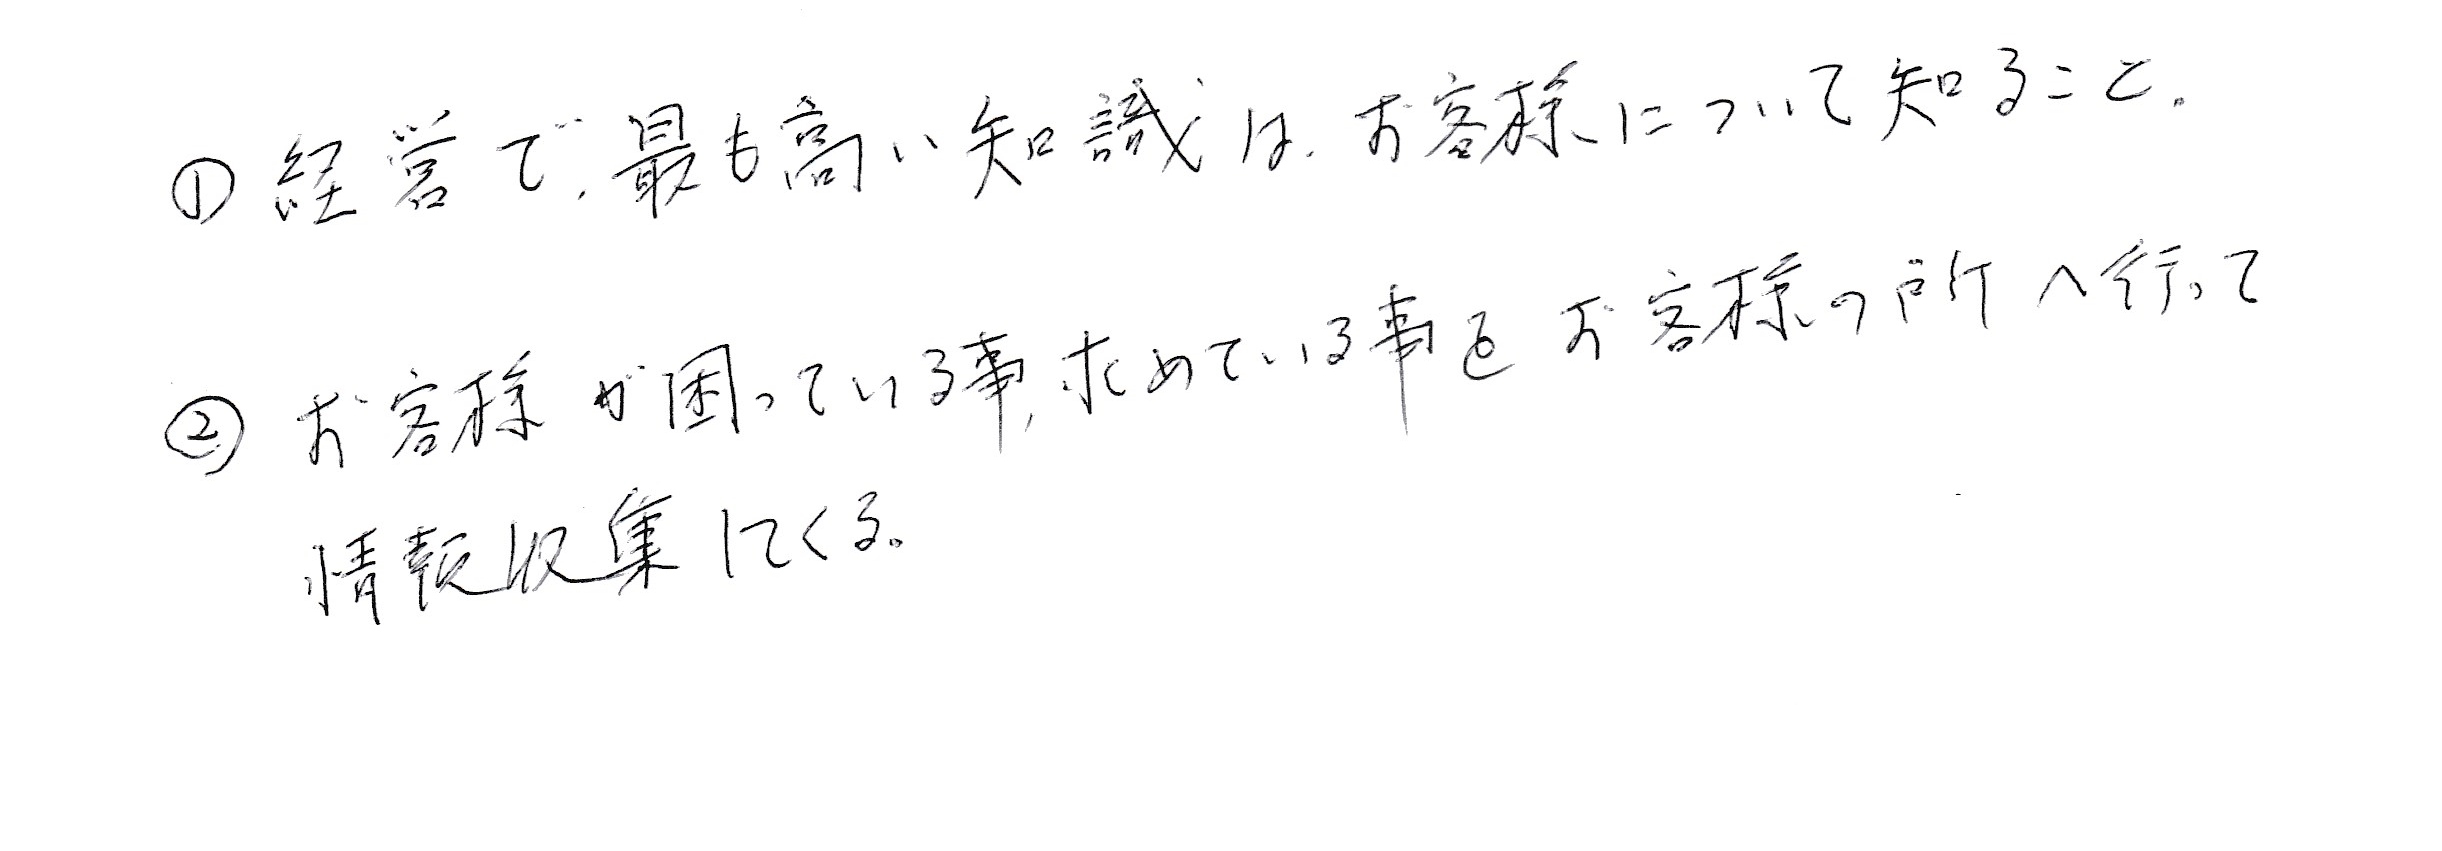 ① 経営で、最も高い知識は、お客様について知ること。
② お客様が困っている事、求めている事をお客様の所へ行って
情報収集してくる。